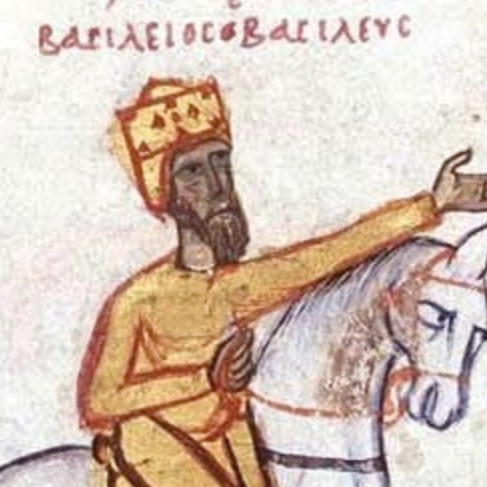 βαϲιλειοϲ ὁ βαϲιλευϲ